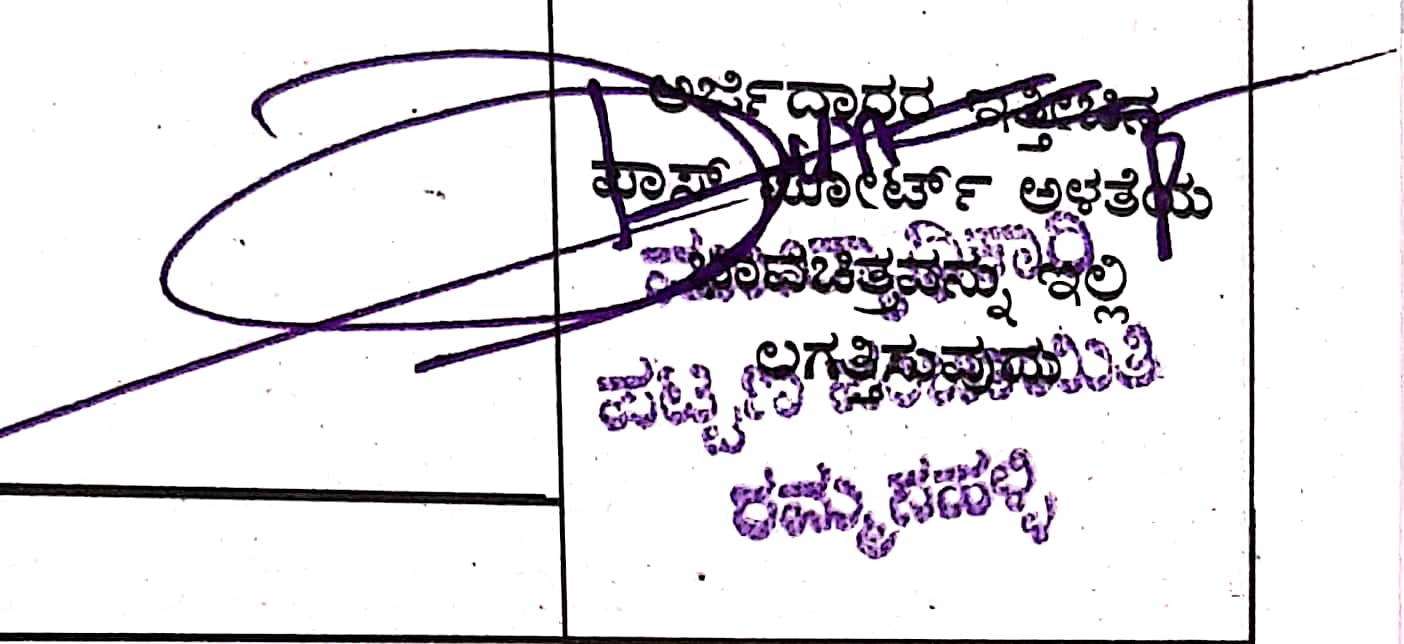 ಅರ್ಜಿದ್ದಾರರ ಇತ್ತೀಚಿನ
ಪಾಸ್ ಪೋರ್ಟ್ ಅಳತೆಯ
ಭಾವಚಿತ್ರವನ್ನು ಇಲ್ಲಿ
ಲಗತ್ತಿಸುವುದು
ಪಟ್ಟಣ ಪಂಚಾಯಿತಿ